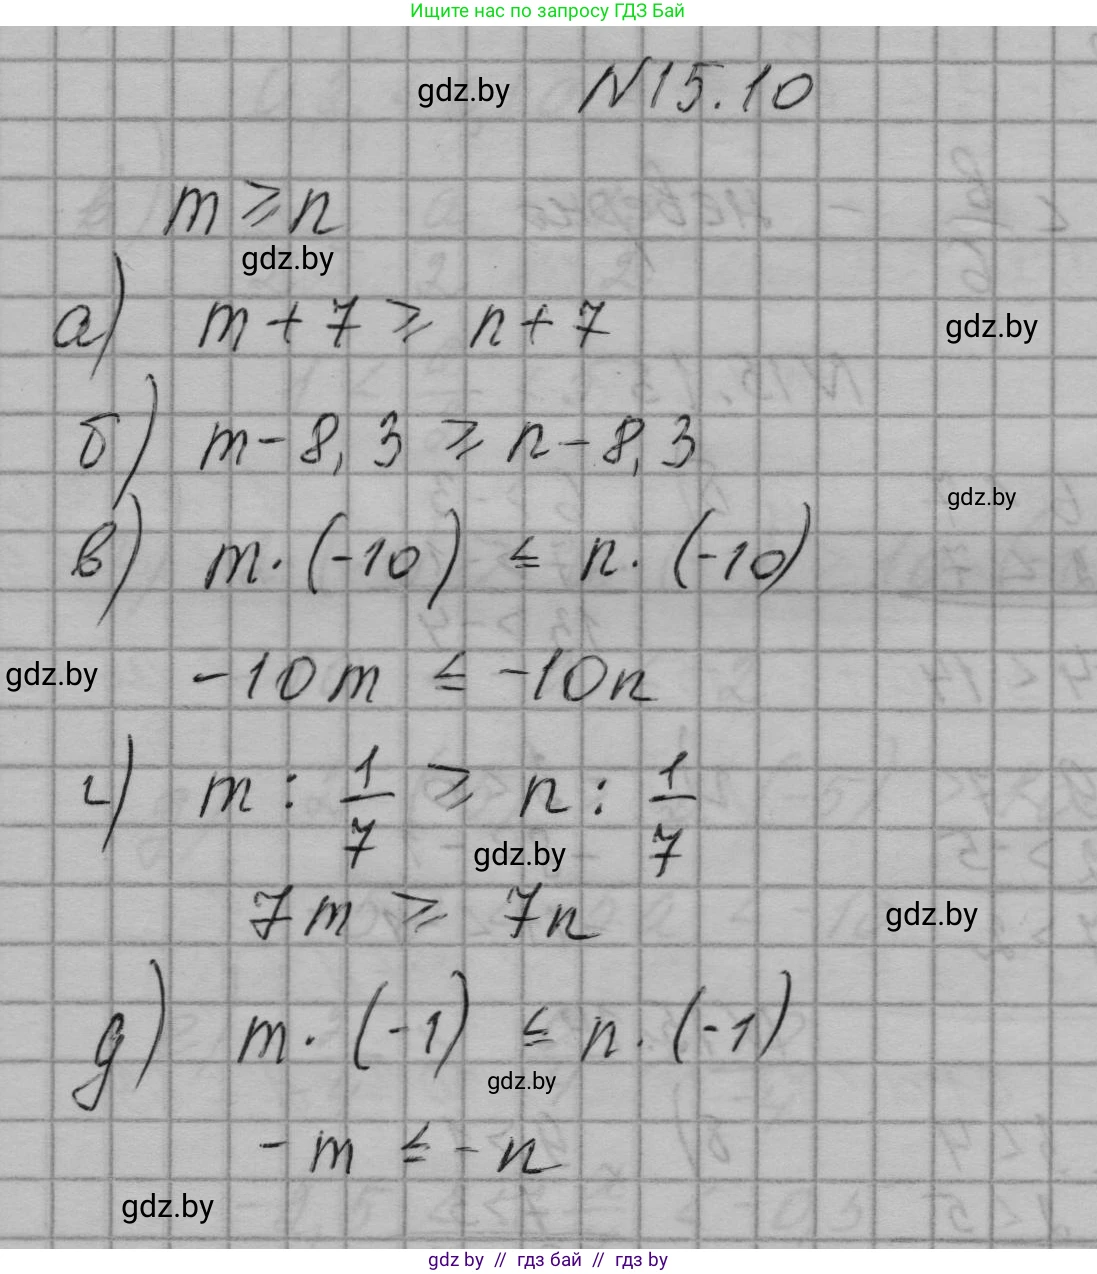 Ищите нас по запросу ГДЗ Бай
gdz.by
N15.10
m ⩾ n
gdz.by
а) m + 7 ⩾ n + 7
gdz.by
б) m - 8,3 ⩾ n - 8,3
gdz.by
в) m · (-10) ≤ n · (-10)
gdz.by
-10m ≤ -10n
г) m : 1/7 ⩾ n : 1/7
gdz.by
7m ⩾ 7n
gdz.by
д) m · (-1) ≤ n · (-1)
gdz.by
- m ≤ - n
gdz.by
gdz by // гдз бай // гдз by